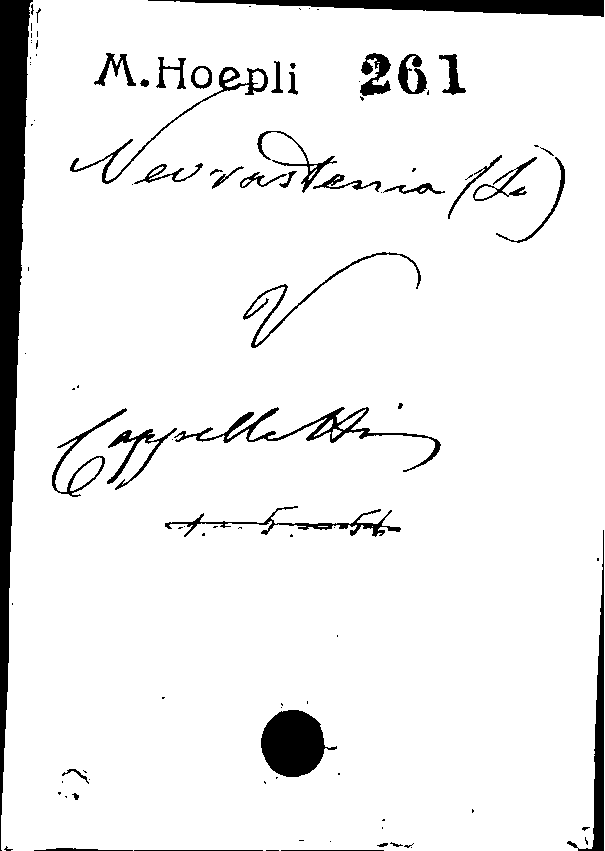 M. Hoepli 261
Nevrastenia (La)
V
Cappelletti
1. 5. 56